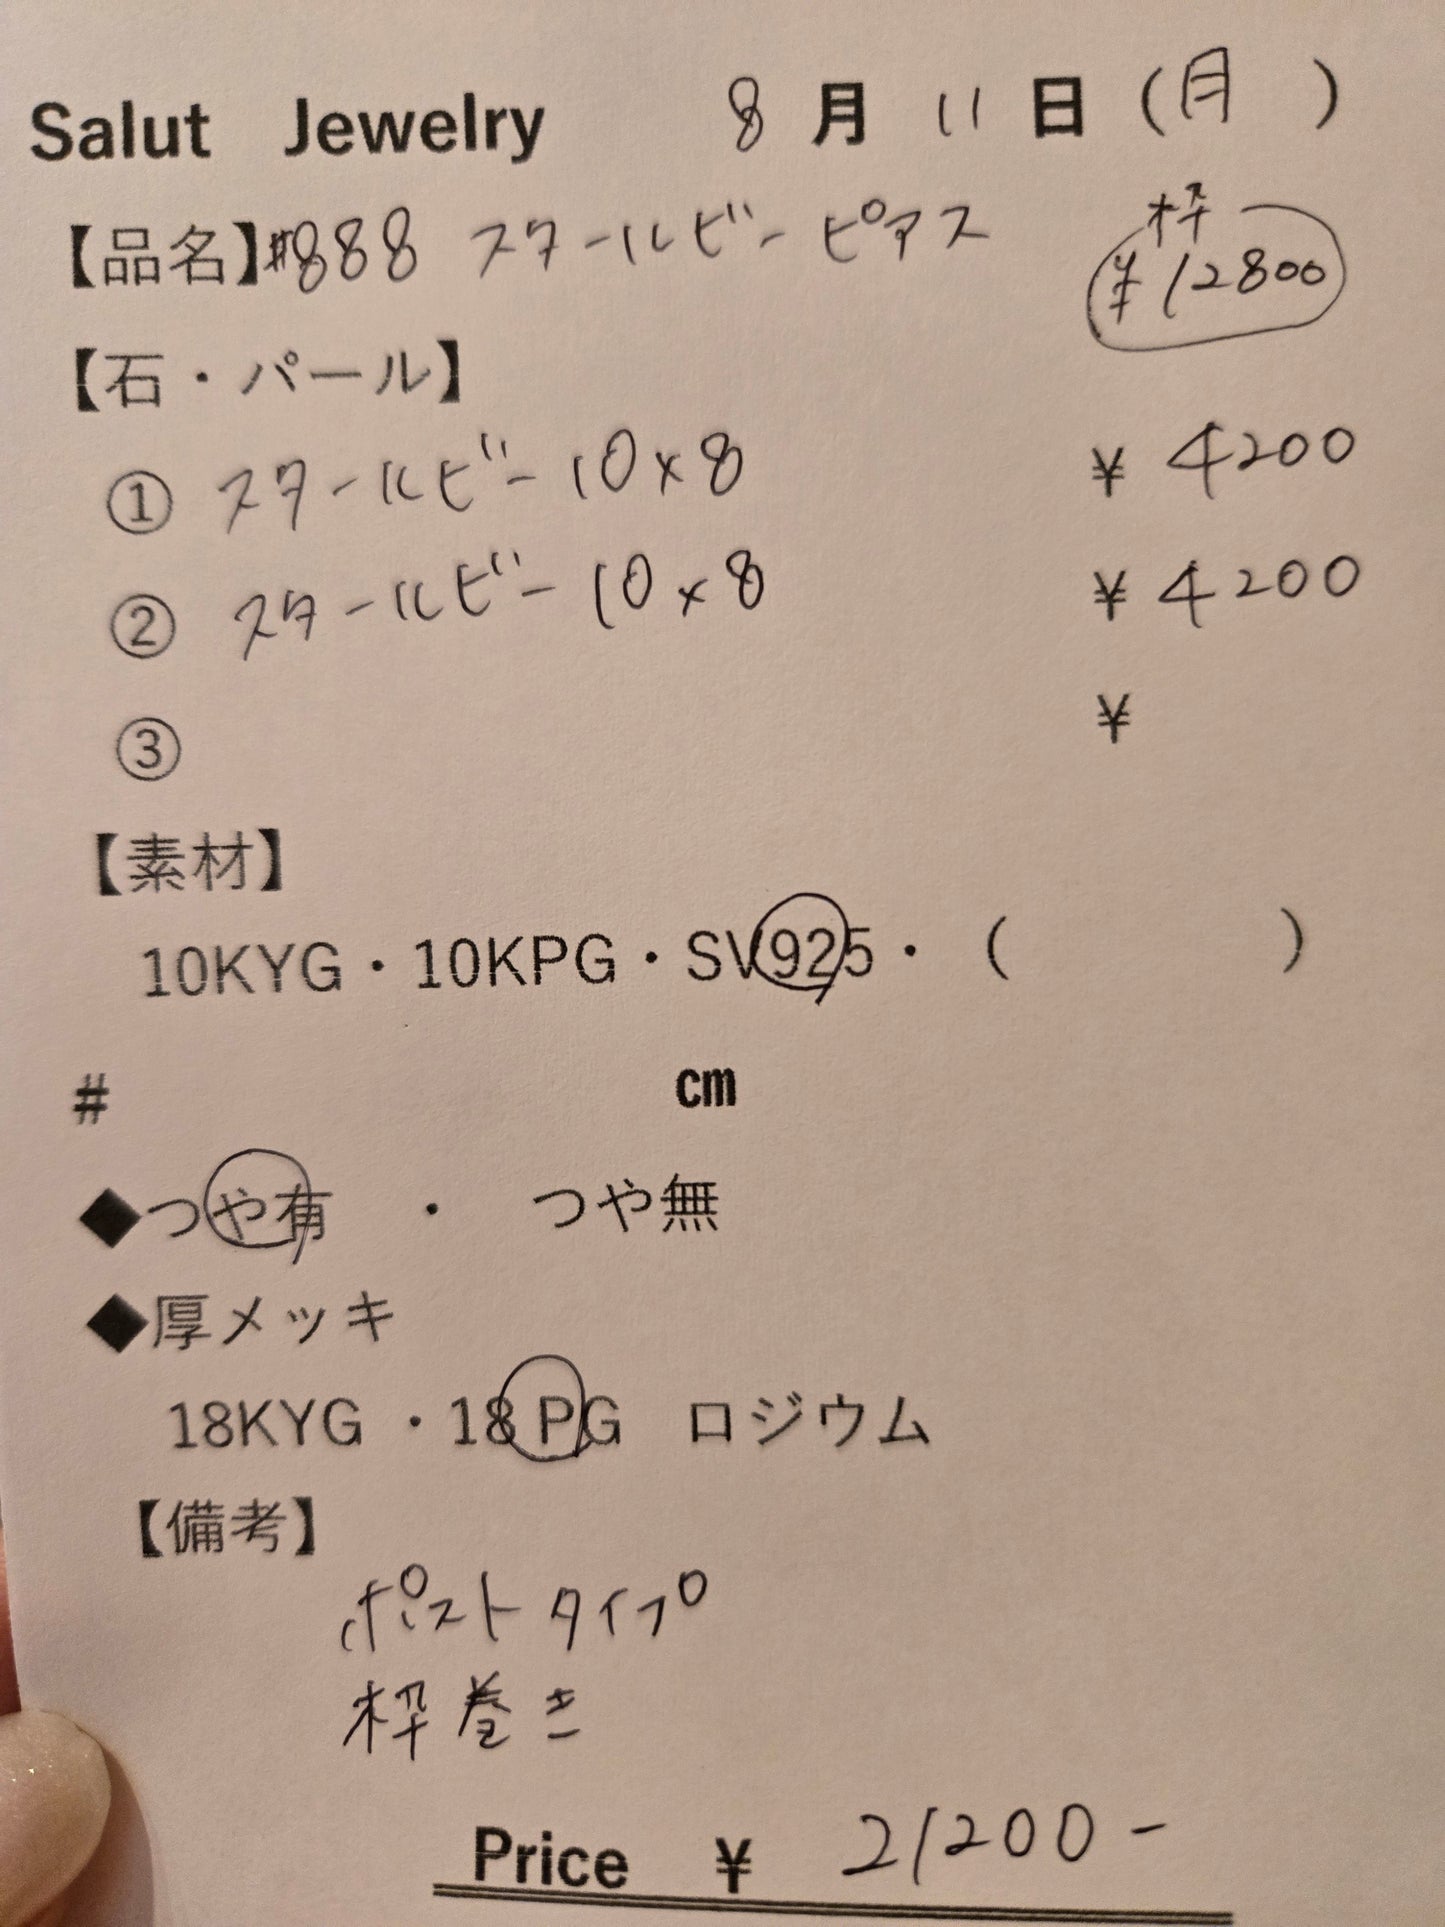 Salut Jewelry 8月11日(月)
【品名】#888 スタールビーピアス 枠
¥12800
【石・パール】
① スタールビー 10×8 ¥4200
② スタールビー 10×8 ¥4200
③ ¥
【素材】
10KYG・10KPG・SV925・( )
# cm
◆つや有 ・ つや無
◆厚メッキ
18KYG・18 PG ロジウム
【備考】
ポストタイプ
枠巻き
Price ¥ 21200-